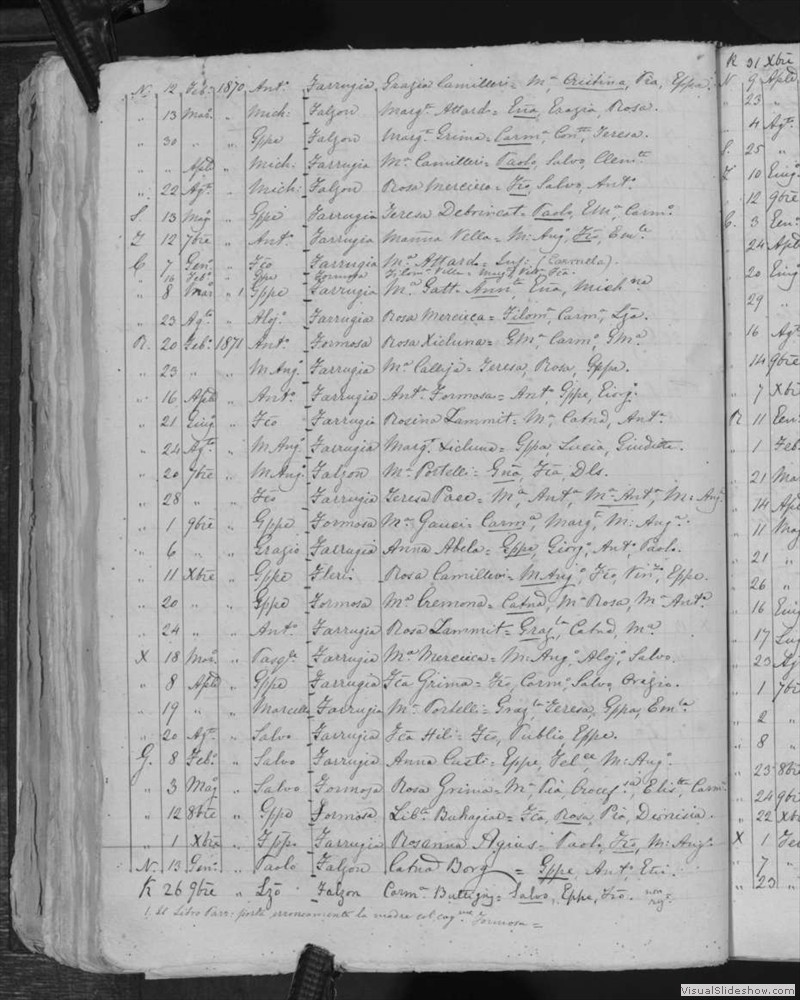 N. 12 Feb. 1870 Ant. Farrugia Grazia Camilleri = Ma. Cristina, Pia, Eppa.
" 13 Mar. " Mich: Falzon Marg.ta Attard = Ena, Grazia, Rosa.
" 30 " " Gppe Falzon Marg.ta Grima = Carm.a Con.tta, Teresa.
" " Aple " Mich: Farrugia Ma. Camilleri = Paolo, Salvo, Clem.te
" 22 Ag.to " Mich: Falzon Rosa Mercieca = Fco, Salvo, Ant.o
S. 13 Mag " Gppe Farrugia Teresa Debrincat = Paolo, Em. Carm.o
Z 12 7bre " Ant.o Farrugia Vella = M: Ang. Fco, Em.le
C 7 Gen. " Fco Farrugia Ma. Attard = Luj: (Carmela).
" 16 Feb. " Gppe Formosa Filom. Vella =
" 8 Mar. " 1 Gppe Farrugia Ma. Gatt = Ann.ta, Ena, Mich.na
" 23 Ag.to " Aloj. Farrugia Rosa Mercieca = Filom. Carm. Lza.
R. 20 Feb. 1871 Ant.o Formosa Rosa Xicluna = GMa. Carm. GMa.
" 23 " " M Ang. Farrugia Ma. Calleja = Teresa, Rosa, Gppe.
" 16 Aple " Ant.o Farrugia Ant.a Formosa = Ant.a Gppe, Giorg.
" 21 Giug " Fco Farrugia Rosina Zammit = Ma. Catna, Ant.a
" 24 Ag.to " M Ang. Farrugia Marg. Xicluna = Gppa, Lucia, Giuditta.
" 20 7bre " M Ang. Falzon Ma. Portelli = Ena, Fca, Dls.
" 28 " " Fco Farrugia Teresa Pace = Ma, Ant.a, Ma. Ant.a, M: Ang.
" 1 9bre " Gppe Formosa Ma. Gauci = Carm.a, Marg.ta, M: Ang.
" 6 " " Grazio Farrugia Anna Abela = Gppe, Giorg. Ant.o Paolo.
" 11 Xbre " Gppe Fleri Rosa Camilleri = M Ang. Fco, Vin. Eppe.
" 20 " " Gppe Formosa Ma. Cremona = Catna, Ma. Rosa, Ma. Ant.a
" 24 " " Ant.o Farrugia Rosa Zammit = Graz.la, Catna, Ma.
X 18 Mar. " Pasq.le Farrugia Ma. Mercieca = M: Ang. Aloj. Salvo.
" 8 Aple " Gppe Farrugia Fca Grima = Fco, Carm. Salvo, Orazia.
" 19 " " Marcello Farrugia Ma. Portelli = Graz.la Teresa, Gppa, Em.la
" 20 Ag.to " Salvo Farrugia Fca Hili = Fco, Publio Eppe.
G. 8 Feb. " Salvo Farrugia Anna Custi = Eppe, Fel.ce, M: Ang.
" 3 Mag " Salvo Formosa Rosa Grima = Ma. Pia, Crocef.sa, Elis.tta, Carm.
" 12 8bre " Gppe Formosa Lib.a Buhagiar = Fca, Rosa, Pio, Dionisia.
" 1 Xbre " Farrugia Rosanna Agius = Paolo, Fco, M: Ang.
N. 13 Gen. " Paolo Falzon Catna Borg = Gppe, Ant.o
K 26 9bre " Lzo Falzon Carm. Buttigieg = Salvo, Eppe, Fco. non reg.
1. Il Libro Parr: porta erroneamente la madre col cog.me Formosa =
K 31 Xbre
N 9 Aple
" 23 "
" 4 Ag.to
S. 25 "
Z 10 Giug
" 12 9bre
C. 3 Gen.
" 24 Aple
" 20 Giug
" 29 "
" 16 Ag.to
" 14 9bre
" 7 Xbre
R 11 Gen.
" 1 Feb.
" 21 Mar
" 14 Aple
" 11 Mag
" 21 "
" 26 "
" 16 Giug
" 17 Lug
" 23 Ag.to
" 1 7bre
" 2 "
" 8 "
" 23 8bre
" 24 9bre
" 22 Xbre
X 1 Feb
" 7 "
" 23 "
VisualSlideshow.com